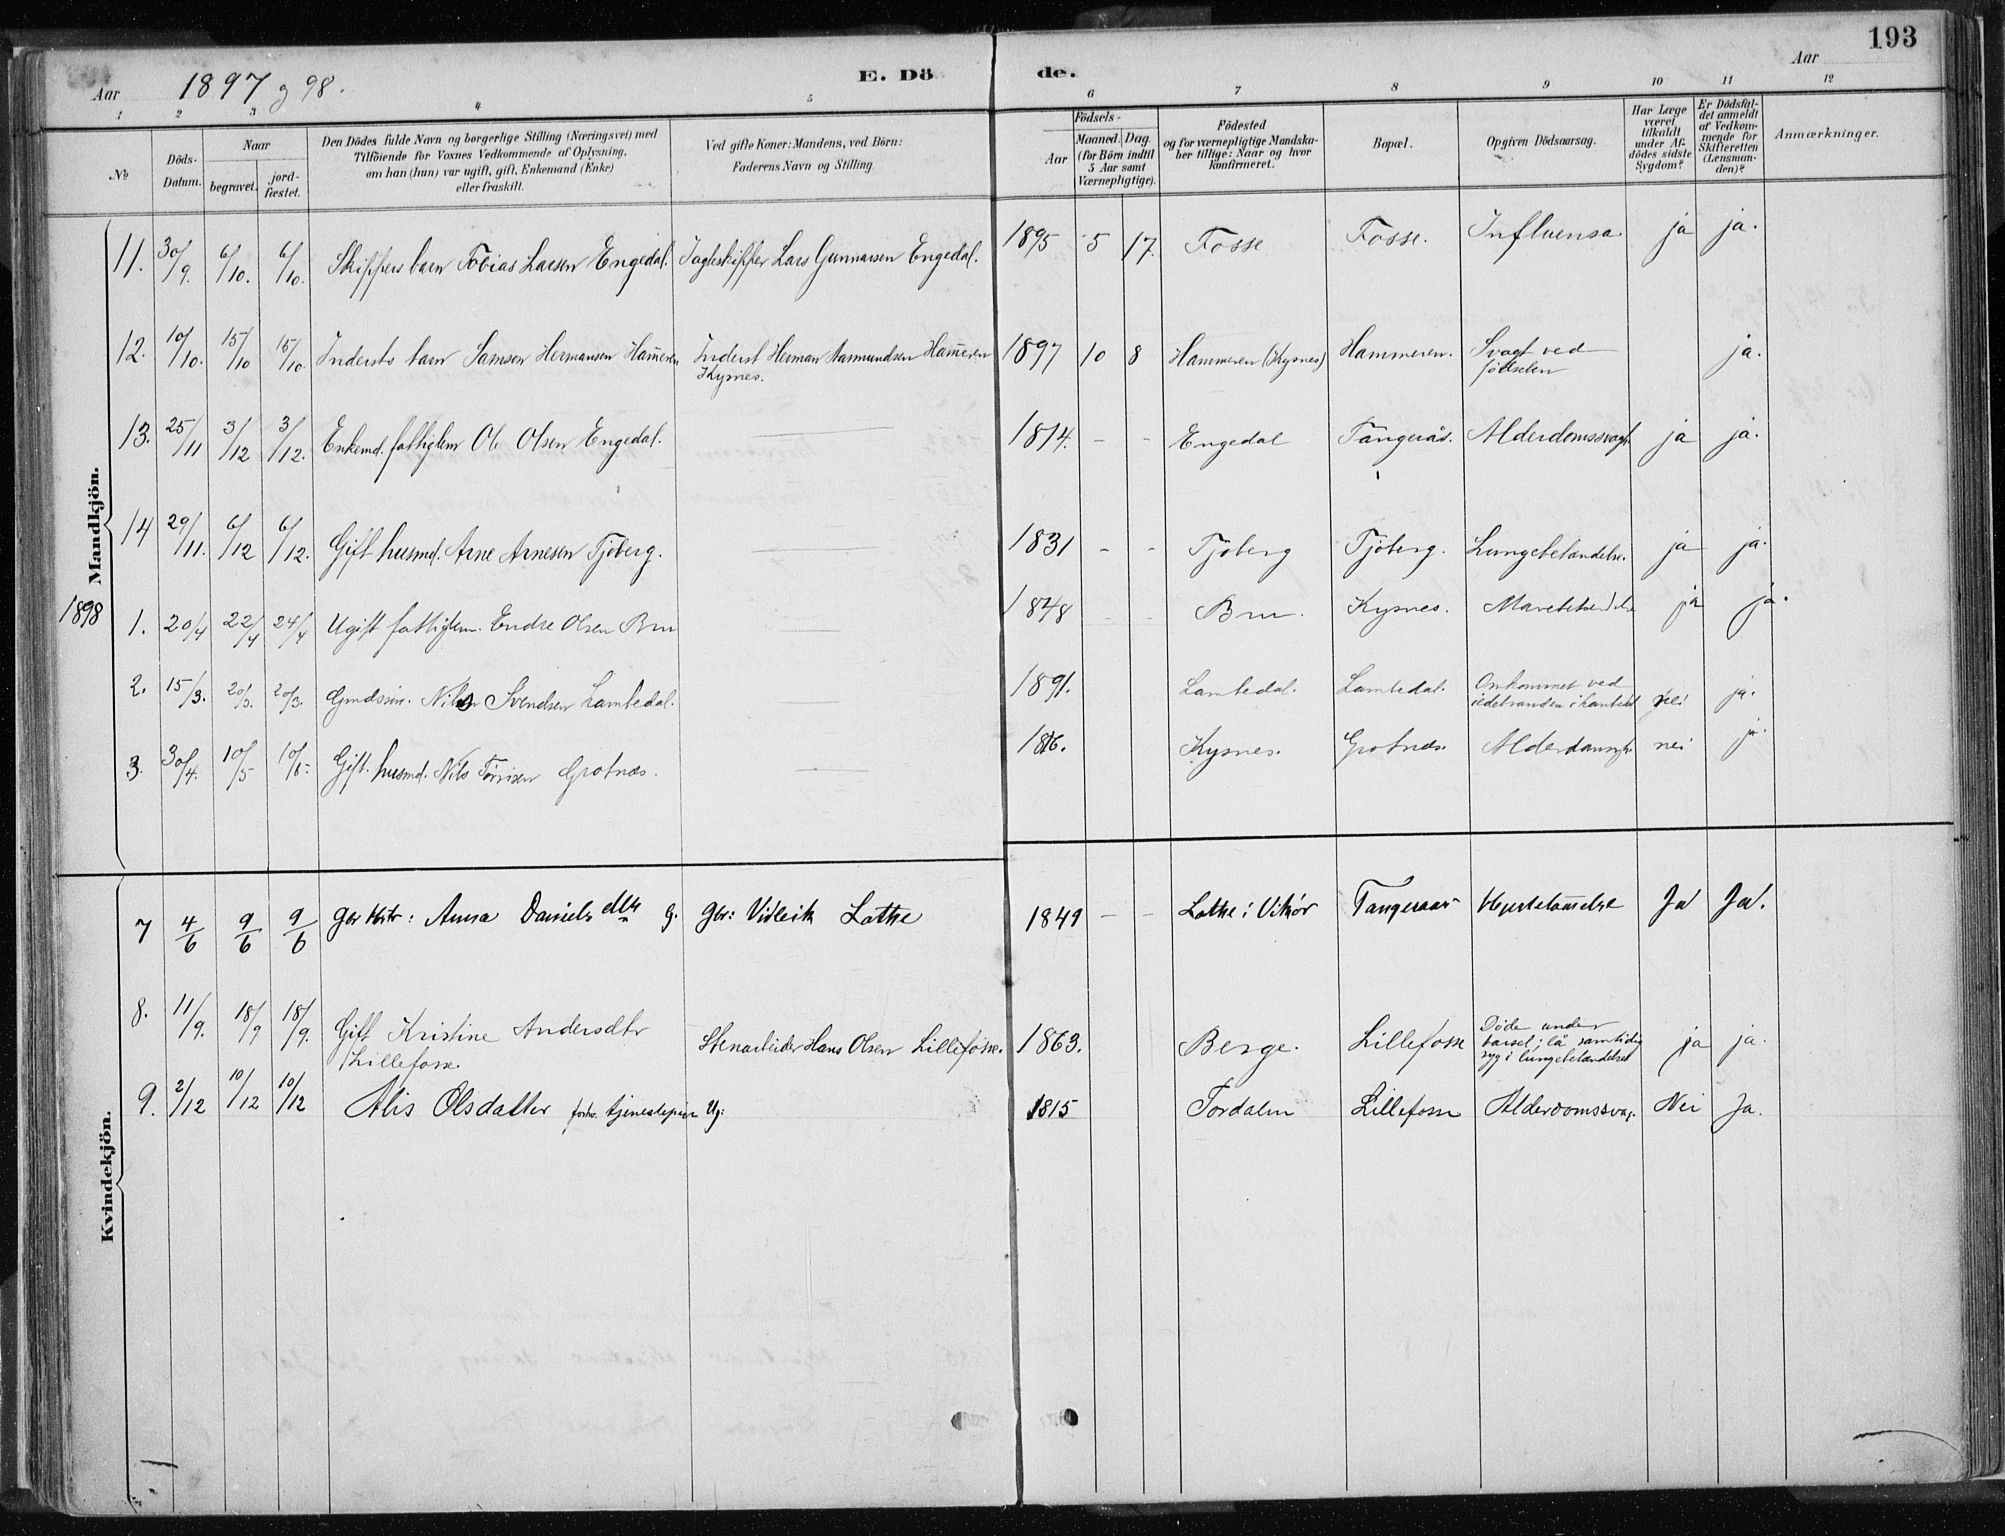 193
Aar 1897 og 98.
E. Döde.
Aar
1 2 3 4 5 6 7 8 9 10 11 12
No
Döds-Datum.
Naar
begravet.
jord-fæstet.
Den Dödes fulde Navn og borgerlige Stilling (Næringsvei) med
Tilföiende for Voxnes Vedkommende af Oplysning,
om han (hun) var ugift, gift, Enkemand (Enke)
eller fraskilt.
Ved gifte Koner: Mandens, ved Börn:
Faderens Navn og Stilling.
Födsels-
Aar
Maaned.
Dag.
(for Börn indtil
5 Aar samt
Værnepligtige).
Födested
og for værnepligtige Mandska-
ber tillige: Naar og hvor
konfirmeret.
Bopæl.
Opgiven Dödsaarsag.
Har Læge
været
tilkaldt
under Af-
dödes sidste
Sygdom?
Er Dödsfal-
det anmeldt
af Vedkom-
mende for
Skifteretten
(Lensman-
den)?
Anmærkninger.
Mandkjön.
11. 30/9. 6/10. 6/10. Skippers barn Tobias Larsen Engedal. Jagteskipper Lars Gunnarsen Engedal. 1895 5 17. Fosse Fosse. Influensa. ja ja.
12. 10/10. 15/10 15/10. Indersts barn Samson Hermansen Ham̄eren Inderst Herman Aamundsen Ham̄eren
Kysnes. 1897 10 8 Hammeren (Kysnes) Hammeren. Svagt ved
fødselen ja.
13. 25/11 3/12 3/12. Enkemd. fattiglem Ole Olsen Engedal. 1814. - - Engedal Tangerås. Alderdomssvagh. ja ja.
14 29/11. 6/12 6/12. Gift husmd. Arne Arnesen Tjoberg. 1831 - - Tjoberg Tjoberg. Lungebetændelse. ja ja.
1898
1. 20/4 22/4 24/4 Ugift fattiglem. Endre Olsen Bru 1848 - - Bru. Kysnes. Mavebetændelse ja ja.
2. 15/3. 20/3. 20/3. Gmdssøn. Nils Svendsen Lambedal. 1891. Lambedal. Lambedal. Omkommet ved
ildebranden i Lambedal nei ja.
3. 30/4. 10/5 10/5. Gift. husmd. Nils Torrisen Grotnæs. 1816. Kysnes. Grotnæs. Alderdomssvagh. nei ja.
Kvindekjön.
7 4/6 9/6 9/6 Gbr Kstr: Anna Danielsdttr g. Gbr: Vidleik Lothe 1849 - - Lothe i Vikør Tangeraas Hjertelam̄else Ja Ja.
8. 11/9. 18/9 18/9. Gift Kristine Andersdtr
Lillefosse. Stenarbeider Hans Olsen Lillefosse. 1863. Berge. Lillefosse Døde under
barsel; lå samtidig
syg i lungebetændelse ja ja.
9. 2/12 10/12 10/12 Alis Olsdatter forhv. tjenestepige Ug: 1815 Tordalen Lillefosse Alderdomssvag. Nei Ja.